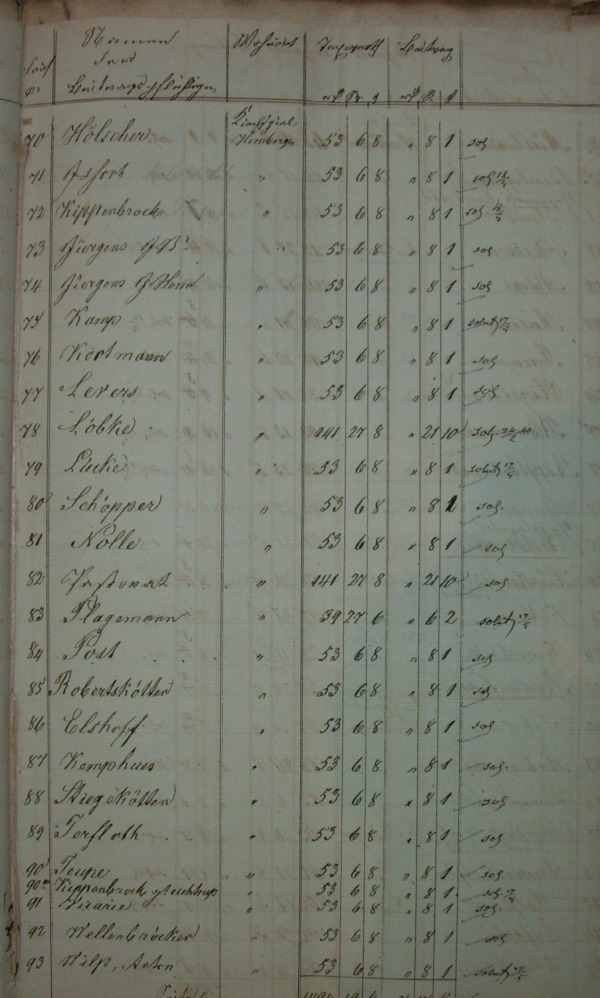 Namen der Beitragspflichtigen Wohnort Beitrag
Kirchspiel
70 Hölscher Hemberge 53 6 8 " 8 1 sol
71 " 53 6 8 " 8 1 sol
72 Kippenbrock " 53 6 8 " 8 1 sol
73 Jürgens " 53 6 8 " 8 1 sol
74 Jürgens " 53 6 8 " 8 1 sol
75 Kamp " 53 6 8 " 8 1
76 Kortmann " 53 6 8 " 8 1 sol
77 Levers " 53 6 8 " 8 1 sol
78 Löbke " 141 27 8 " 21 10 sol
79 Lücke " 53 6 8 " 8 1
80 Schöpper " 53 6 8 " 8 1 sol.
81 Nolle " 53 6 8 " 8 1 sol
82 Pastorat " 141 27 8 " 21 10 sol
83 Plagemann " 39 27 6 " 6 2
84 Post " 53 6 8 " 8 1 sol
85 Robertskötter " 53 6 8 " 8 1 sol
86 Elshoff " 53 6 8 " 8 1 sol
87 Kamphues " 53 6 8 " 8 1 sol.
88 Stiegekötter " 53 6 8 " 8 1 sol
89 Torfloth " 53 6 8 " 8 1 sol
90 Teupe " 53 6 8 " 8 1 sol
90a Kippenbrock " 53 6 8 " 8 1 sol
91 Vicarie " 53 6 8 " 8 1 sol.
92 Wellenbröcker " 53 6 8 " 8 1 sol
93 Wilp, Anton " 53 6 8 " 8 1